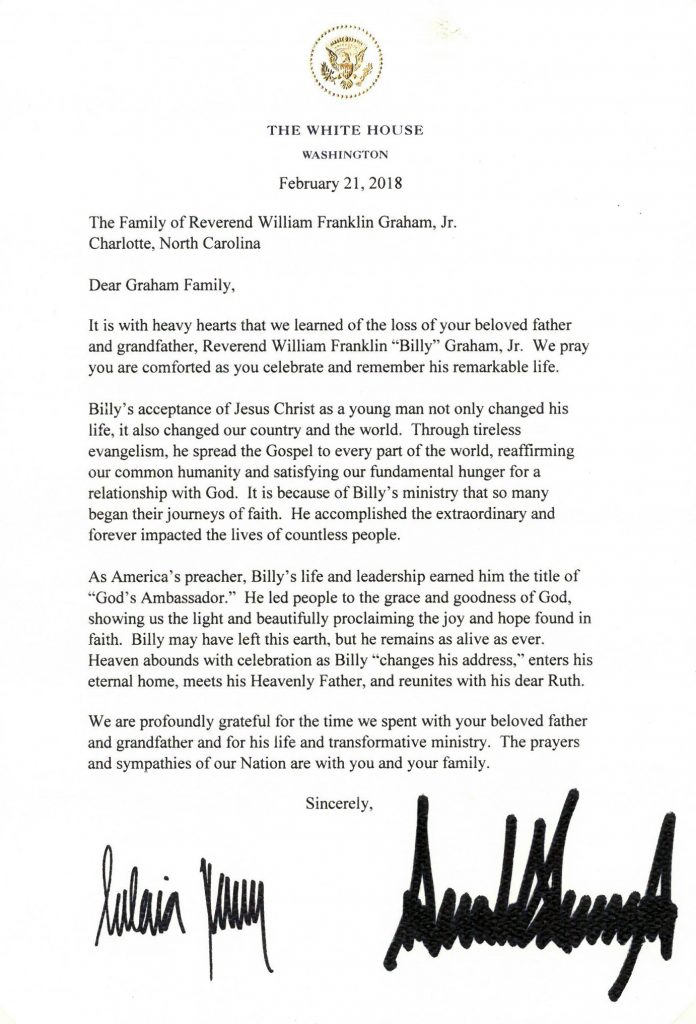 THE WHITE HOUSE
WASHINGTON
February 21, 2018
The Family of Reverend William Franklin Graham, Jr.
Charlotte, North Carolina
Dear Graham Family,
It is with heavy hearts that we learned of the loss of your beloved father
and grandfather, Reverend William Franklin “Billy” Graham, Jr.  We pray
you are comforted as you celebrate and remember his remarkable life.
Billy’s acceptance of Jesus Christ as a young man not only changed his
life, it also changed our country and the world.  Through tireless
evangelism, he spread the Gospel to every part of the world, reaffirming
our common humanity and satisfying our fundamental hunger for a
relationship with God.  It is because of Billy’s ministry that so many
began their journeys of faith.  He accomplished the extraordinary and
forever impacted the lives of countless people.
As America’s preacher, Billy’s life and leadership earned him the title of
“God’s Ambassador.”  He led people to the grace and goodness of God,
showing us the light and beautifully proclaiming the joy and hope found in
faith.  Billy may have left this earth, but he remains as alive as ever.
Heaven abounds with celebration as Billy “changes his address,” enters his
eternal home, meets his Heavenly Father, and reunites with his dear Ruth.
We are profoundly grateful for the time we spent with your beloved father
and grandfather and for his life and transformative ministry.  The prayers
and sympathies of our Nation are with you and your family.
Sincerely,